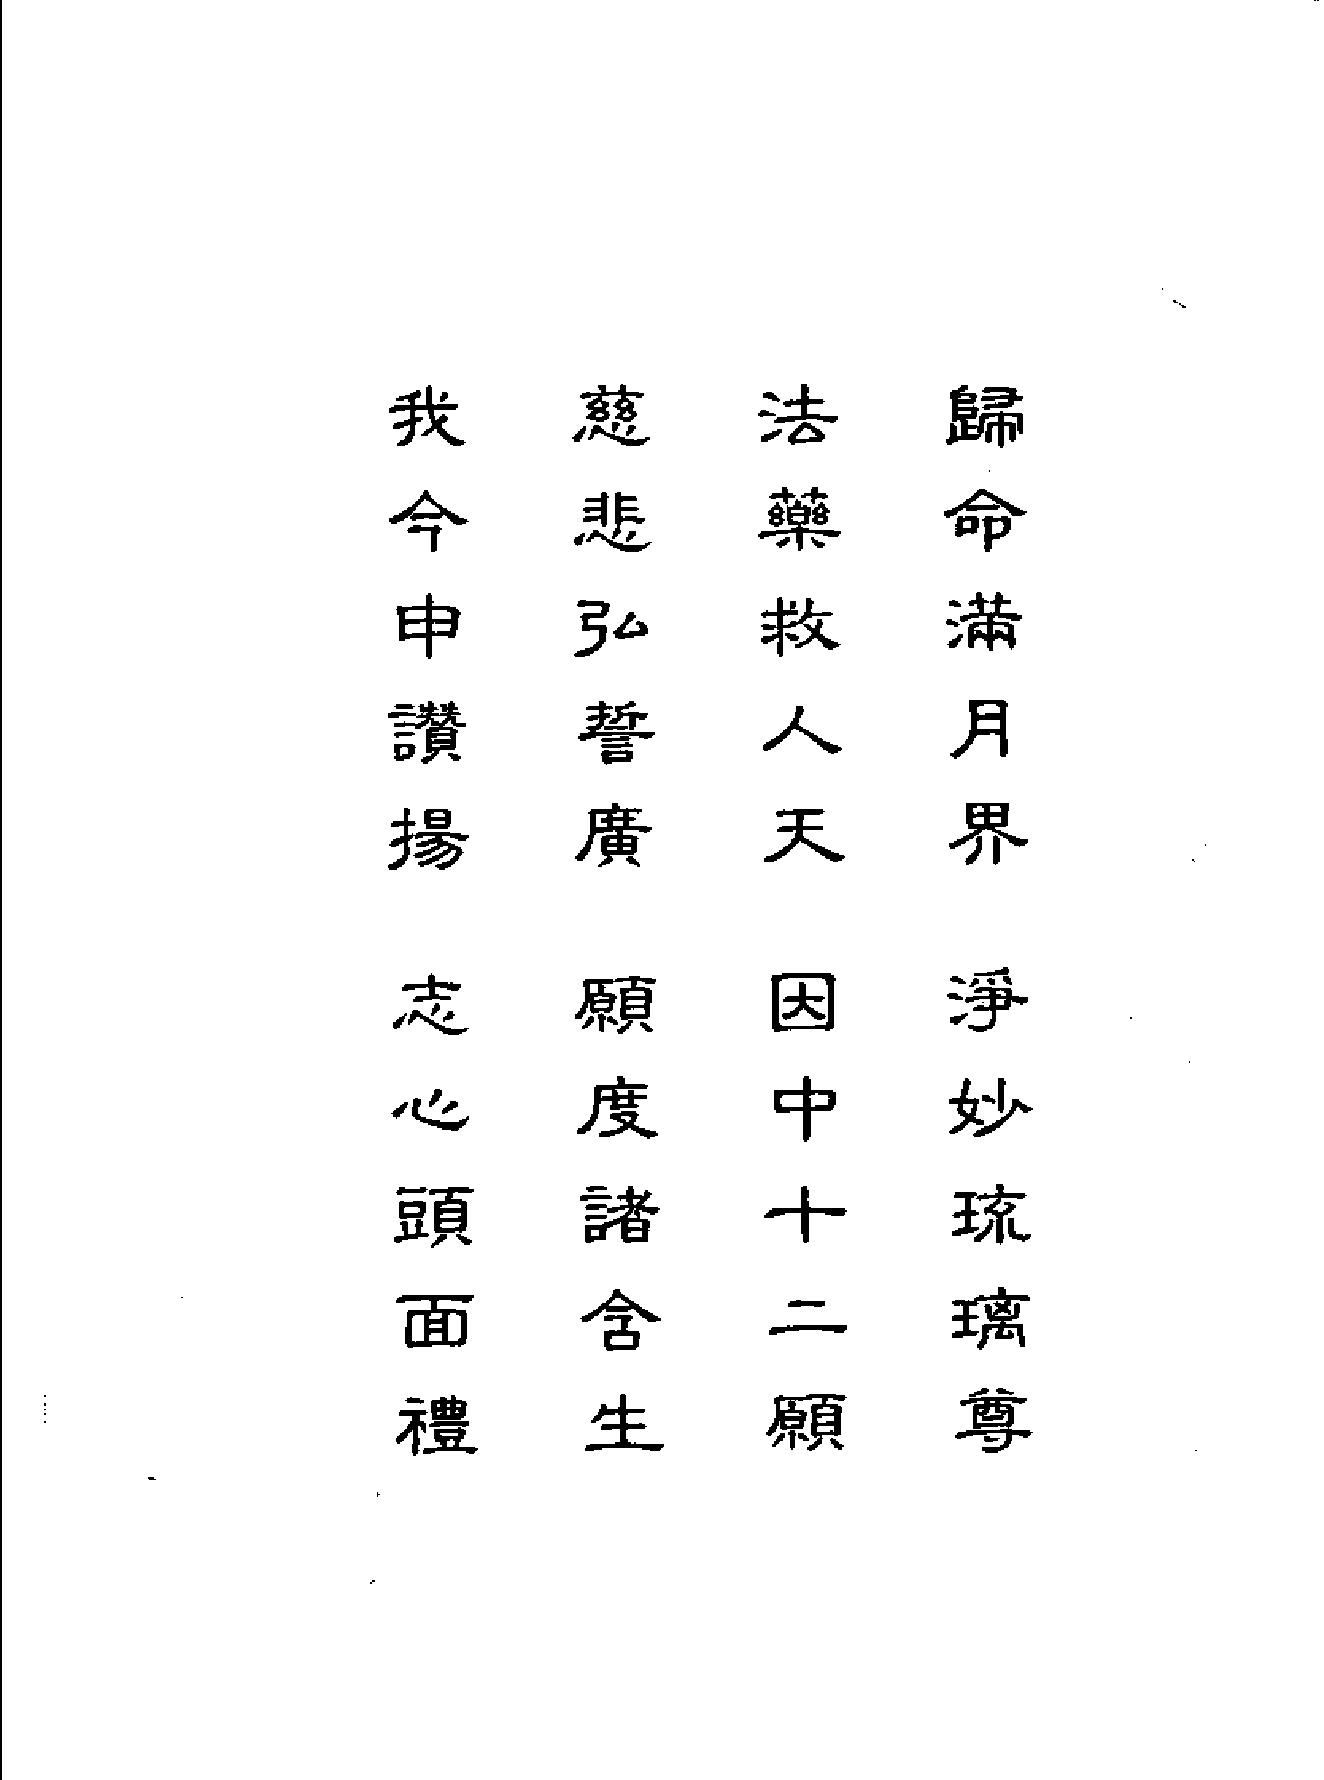 歸命滿月界　淨妙琉璃尊
法藥救人天　因中十二願
慈悲弘誓廣　願度諸含生
我今申讚揚　志心頭面禮